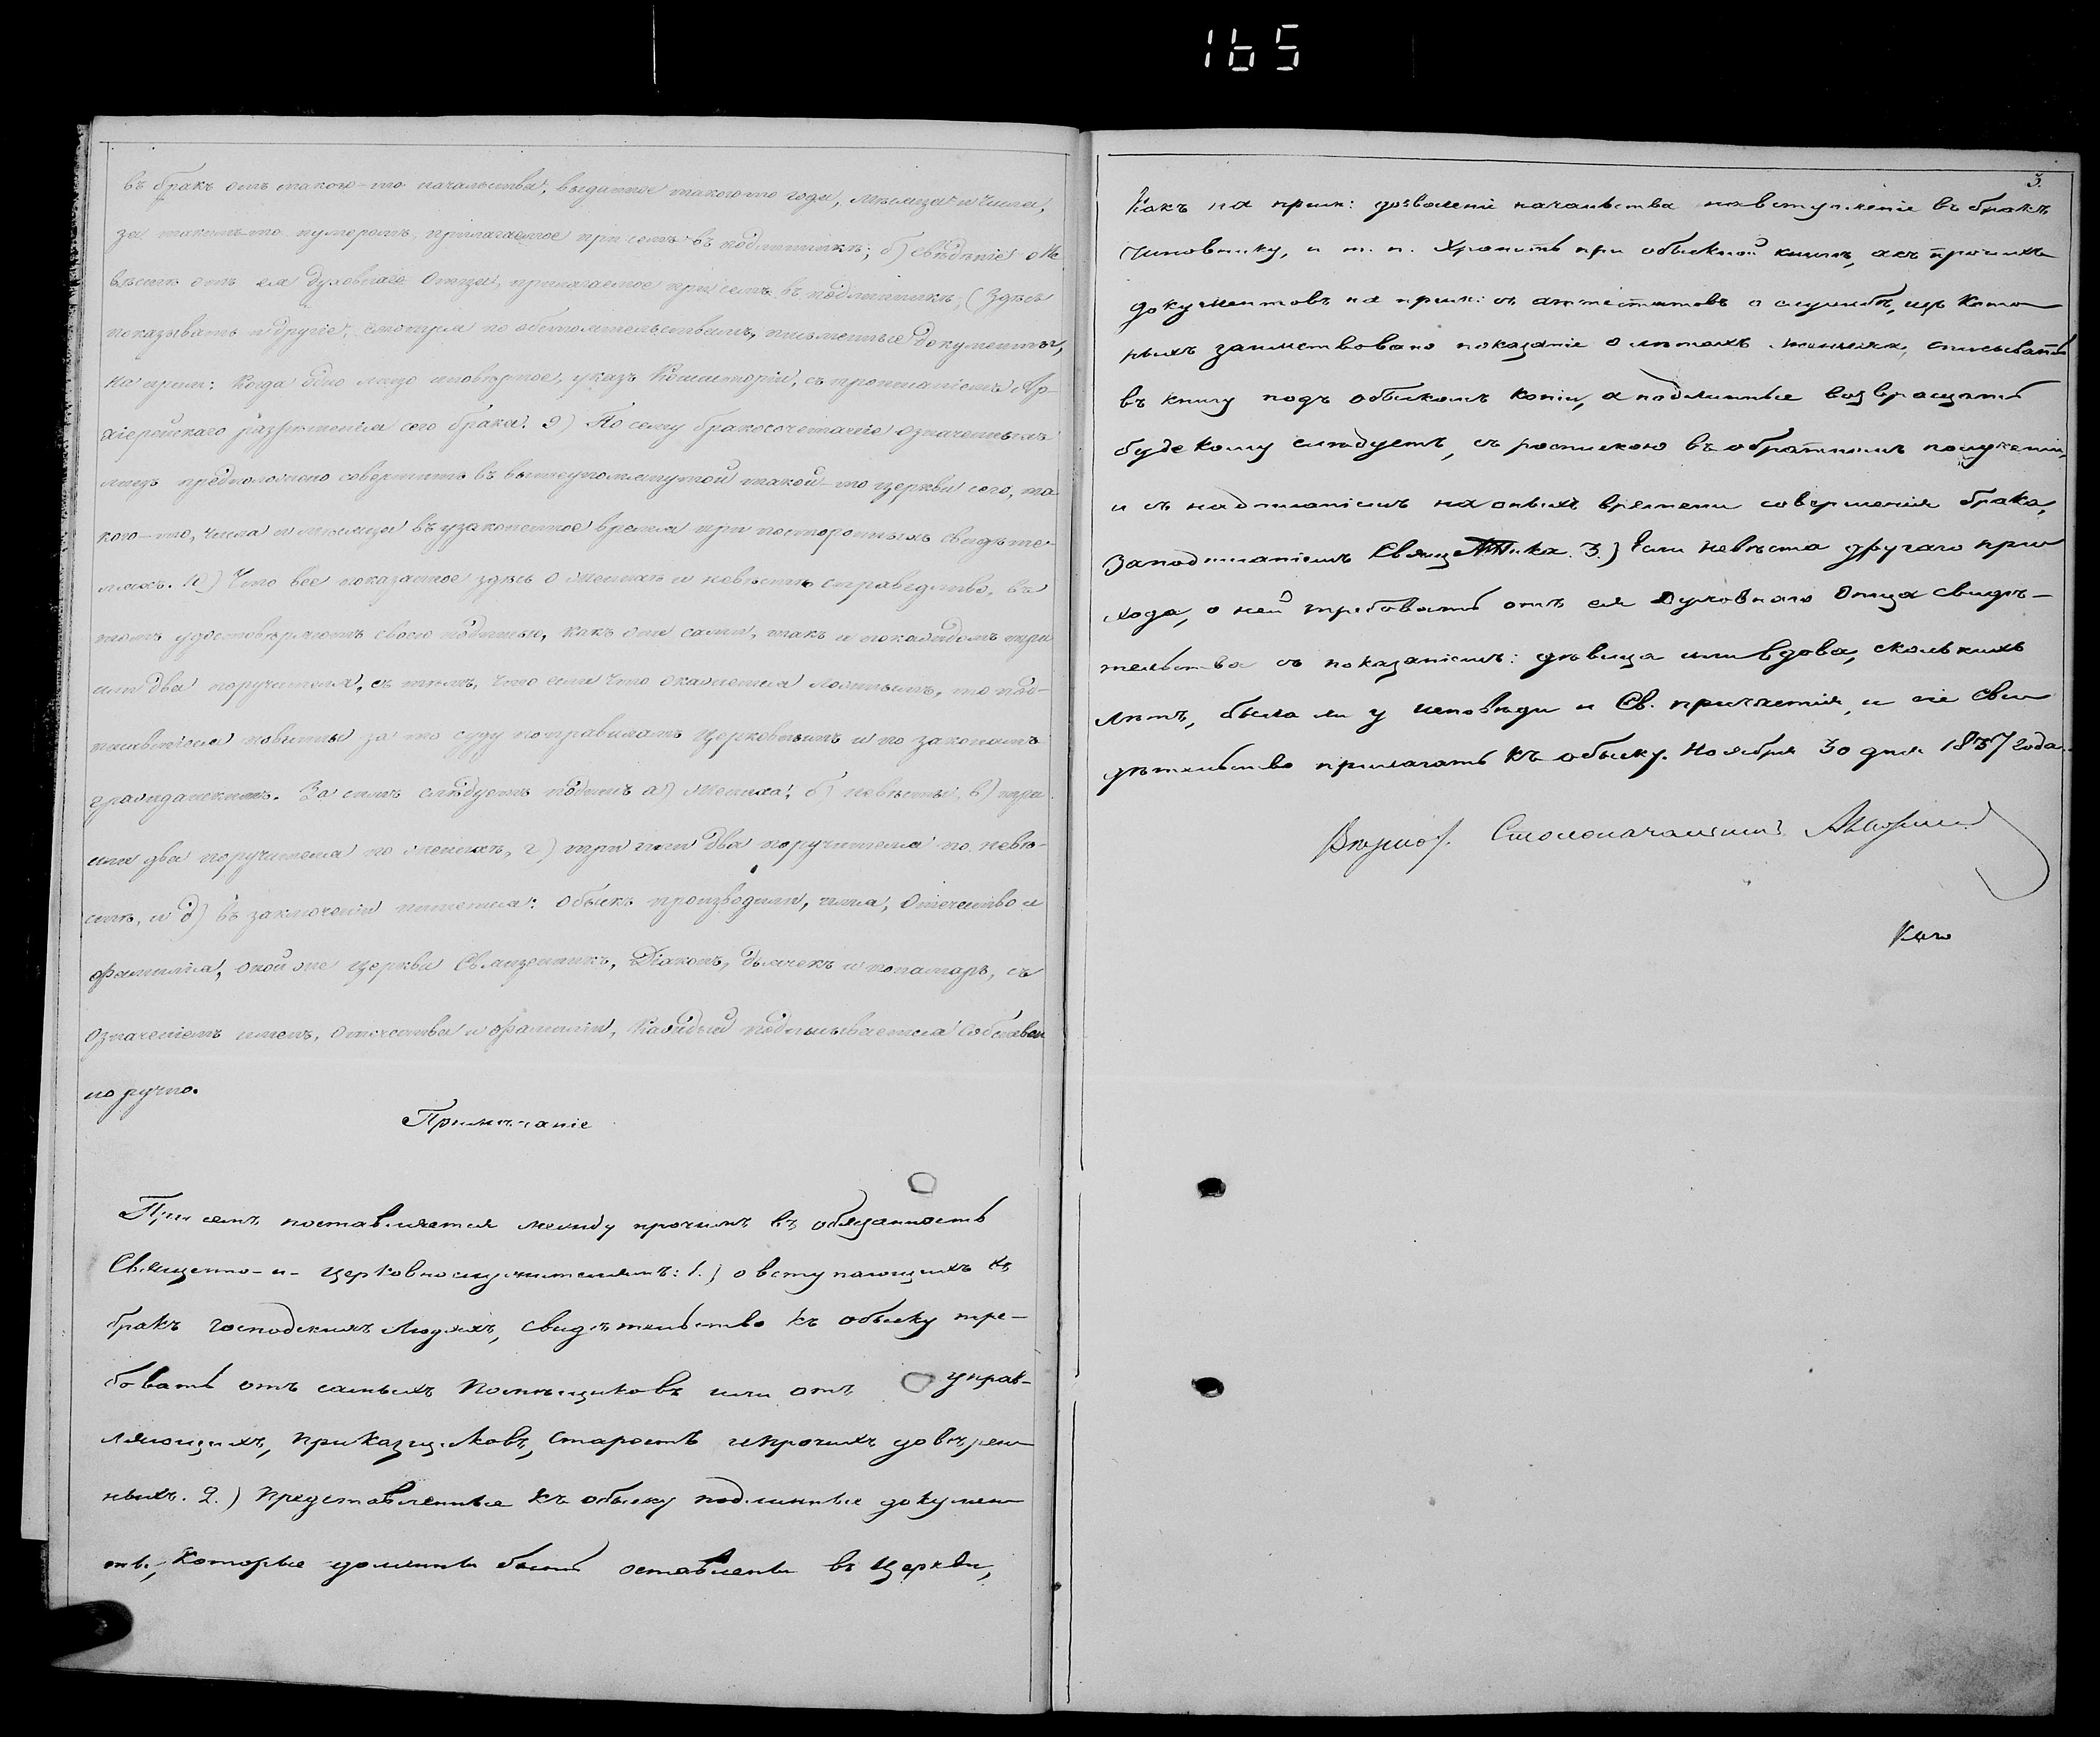 165
въ бракъ отъ такого-то начальства, выданное такого то года, мѣсяца и числа,
за такимъ-то нумеромъ, прилагаемое при семъ въ подлинникѣ; б) свѣдѣніе о не
вѣстѣ отъ ея духовнаго Отца, прилагаемое при семъ въ подлинникѣ; (Здѣсь
показывать и другіе, смотря по обстоятельствамъ, письменные документы,
на прим: когда одно лицо иновѣрное, указъ Консисторіи, съ прописаніемъ Ар-
хіерейскаго разрѣшенія сего брака. 9) По сему бракосочетаніе означенныхъ
лицъ предположено совершить въ вышеупомянутой такой-то церкви сего, та
кого-то, числа и мѣсяца въ узаконенное время при постороннихъ свидѣте-
ляхъ. 10) Что все показанное здѣсь о женихѣ и невѣстѣ справедливо, въ
томъ удостовѣряютъ своею подписью, какъ они сами, такъ и по каждомъ три
или два поручителя, съ тѣмъ, что если что окажется ложнымъ, то под-
писавшіеся повинны за то суду по правиламъ Церковнымъ и по законамъ
гражданскимъ. За симъ слѣдуетъ подпись а) Жениха, б) невѣсты, в) три
или два поручителя по женихѣ, г) три или два поручителя по невѣ-
стѣ, и д) въ заключеніи пишется: обыскъ производили, имя, Отечество и
фамилія, оной же Церкви Священникъ, Діаконъ, дьячекъ и понамарь, съ
означеніемъ именъ, отечества и фамиліи, каждый подписывается собствен
но ручно.
Примѣчаніе
При семъ поставляется между прочимъ въ обязанность
Священно-и-Церковнослужителямъ: 1.) о вступающихъ въ
бракъ господскихъ людяхъ, свидѣтельство къ обыску тре-
бовать отъ самыхъ помѣщиковъ или отъ управ-
ляющихъ, приказщиковъ, старостъ и прочихъ довѣрен
ныхъ. 2.) Представленные къ обыску подлинные докумен
ты, которые должны быть оставлены въ Церкви,
3.
Какъ на прим: дозволеніе начальства на вступленіе въ бракъ
Чиновнику, и т. п. хранить при обыскной книгѣ, а съ прочихъ
документовъ на прим: съ аттестатовъ о службѣ, изъ кото
рыхъ заимствовано показаніе о лѣтахъ жениха, списывать
въ книгу подъ обыскомъ копіи, а подлинные возвращать
буде кому слѣдуетъ, съ роспискою въ обратномъ полученіи,
и съ надписаніемъ на оныхъ времени совершенія брака,
За подписаніемъ Священника. 3.) Если невѣста другаго при
хода, о ней требовать отъ ея Духовнаго Отца свидѣ-
тельства съ показаніемъ: дѣвица или вдова, сколькихъ
лѣтъ, была ли у исповѣди и Св. причастія, и сіе сви
дѣтельство прилагать къ обыску. Ноября 30 дня 1837 года.
Столоначальникъ